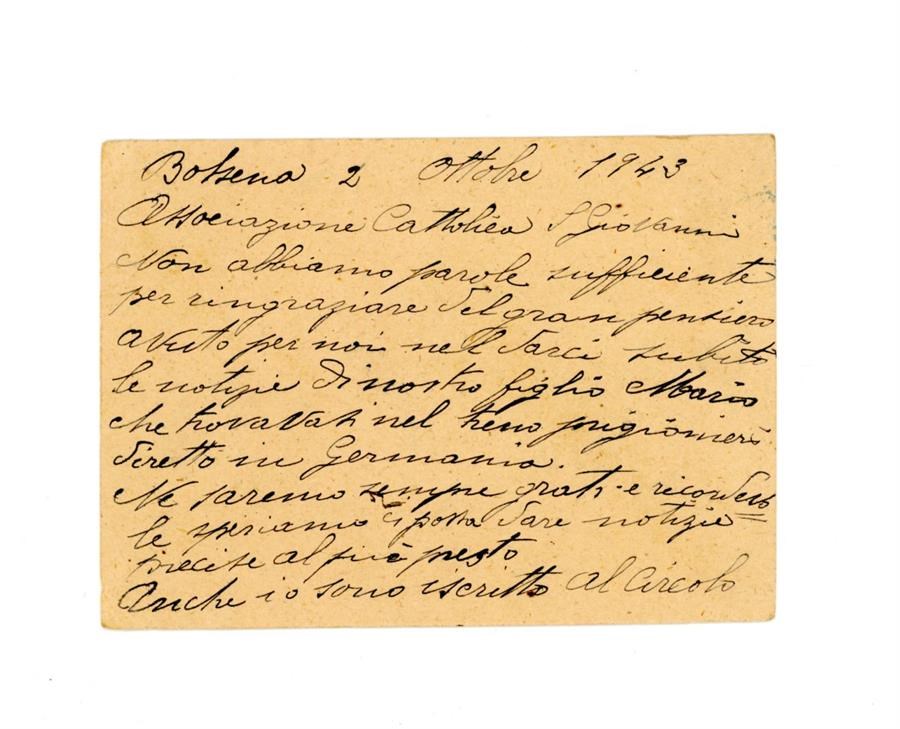 Bolsena 2 Ottobre 1943
Associazione Cattolica S Giovanni
Non abbiamo parole sufficiente
per ringraziare del gran pensiero
avuto per noi nel darci subito
le notizie di nostro figlio Mario
che trovavasi nel treno prigionieri
diretto in Germania.
Ne saremo sempre grati e ricordevo
le speriamo ci possa dare notizie
precise al più presto
Anche io sono iscritto al Circolo